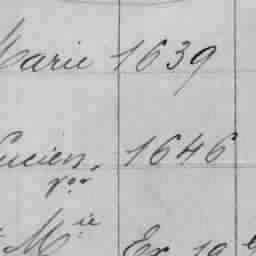 Marie 1639
Lucien, 1646
Mie Ex 19 e